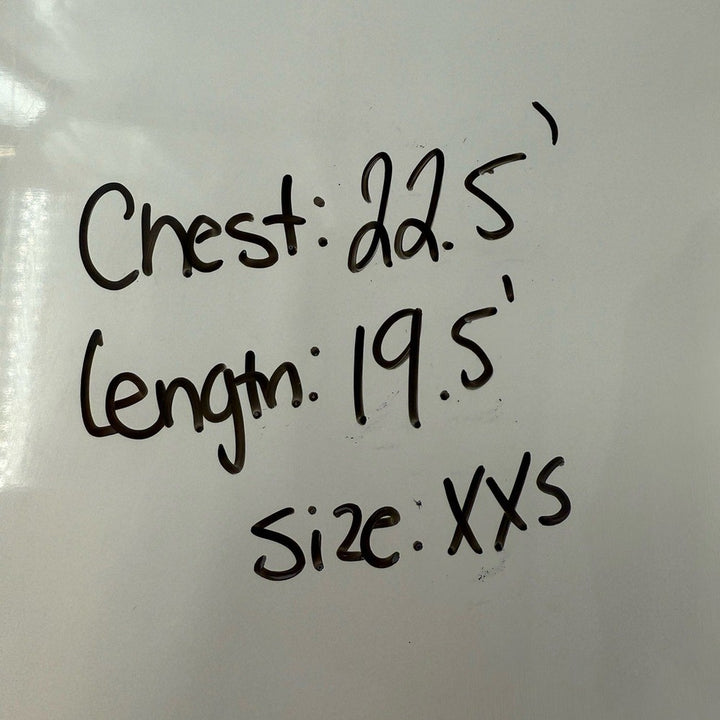 Chest: 22.5'
Length: 19.5'
Size: XXS